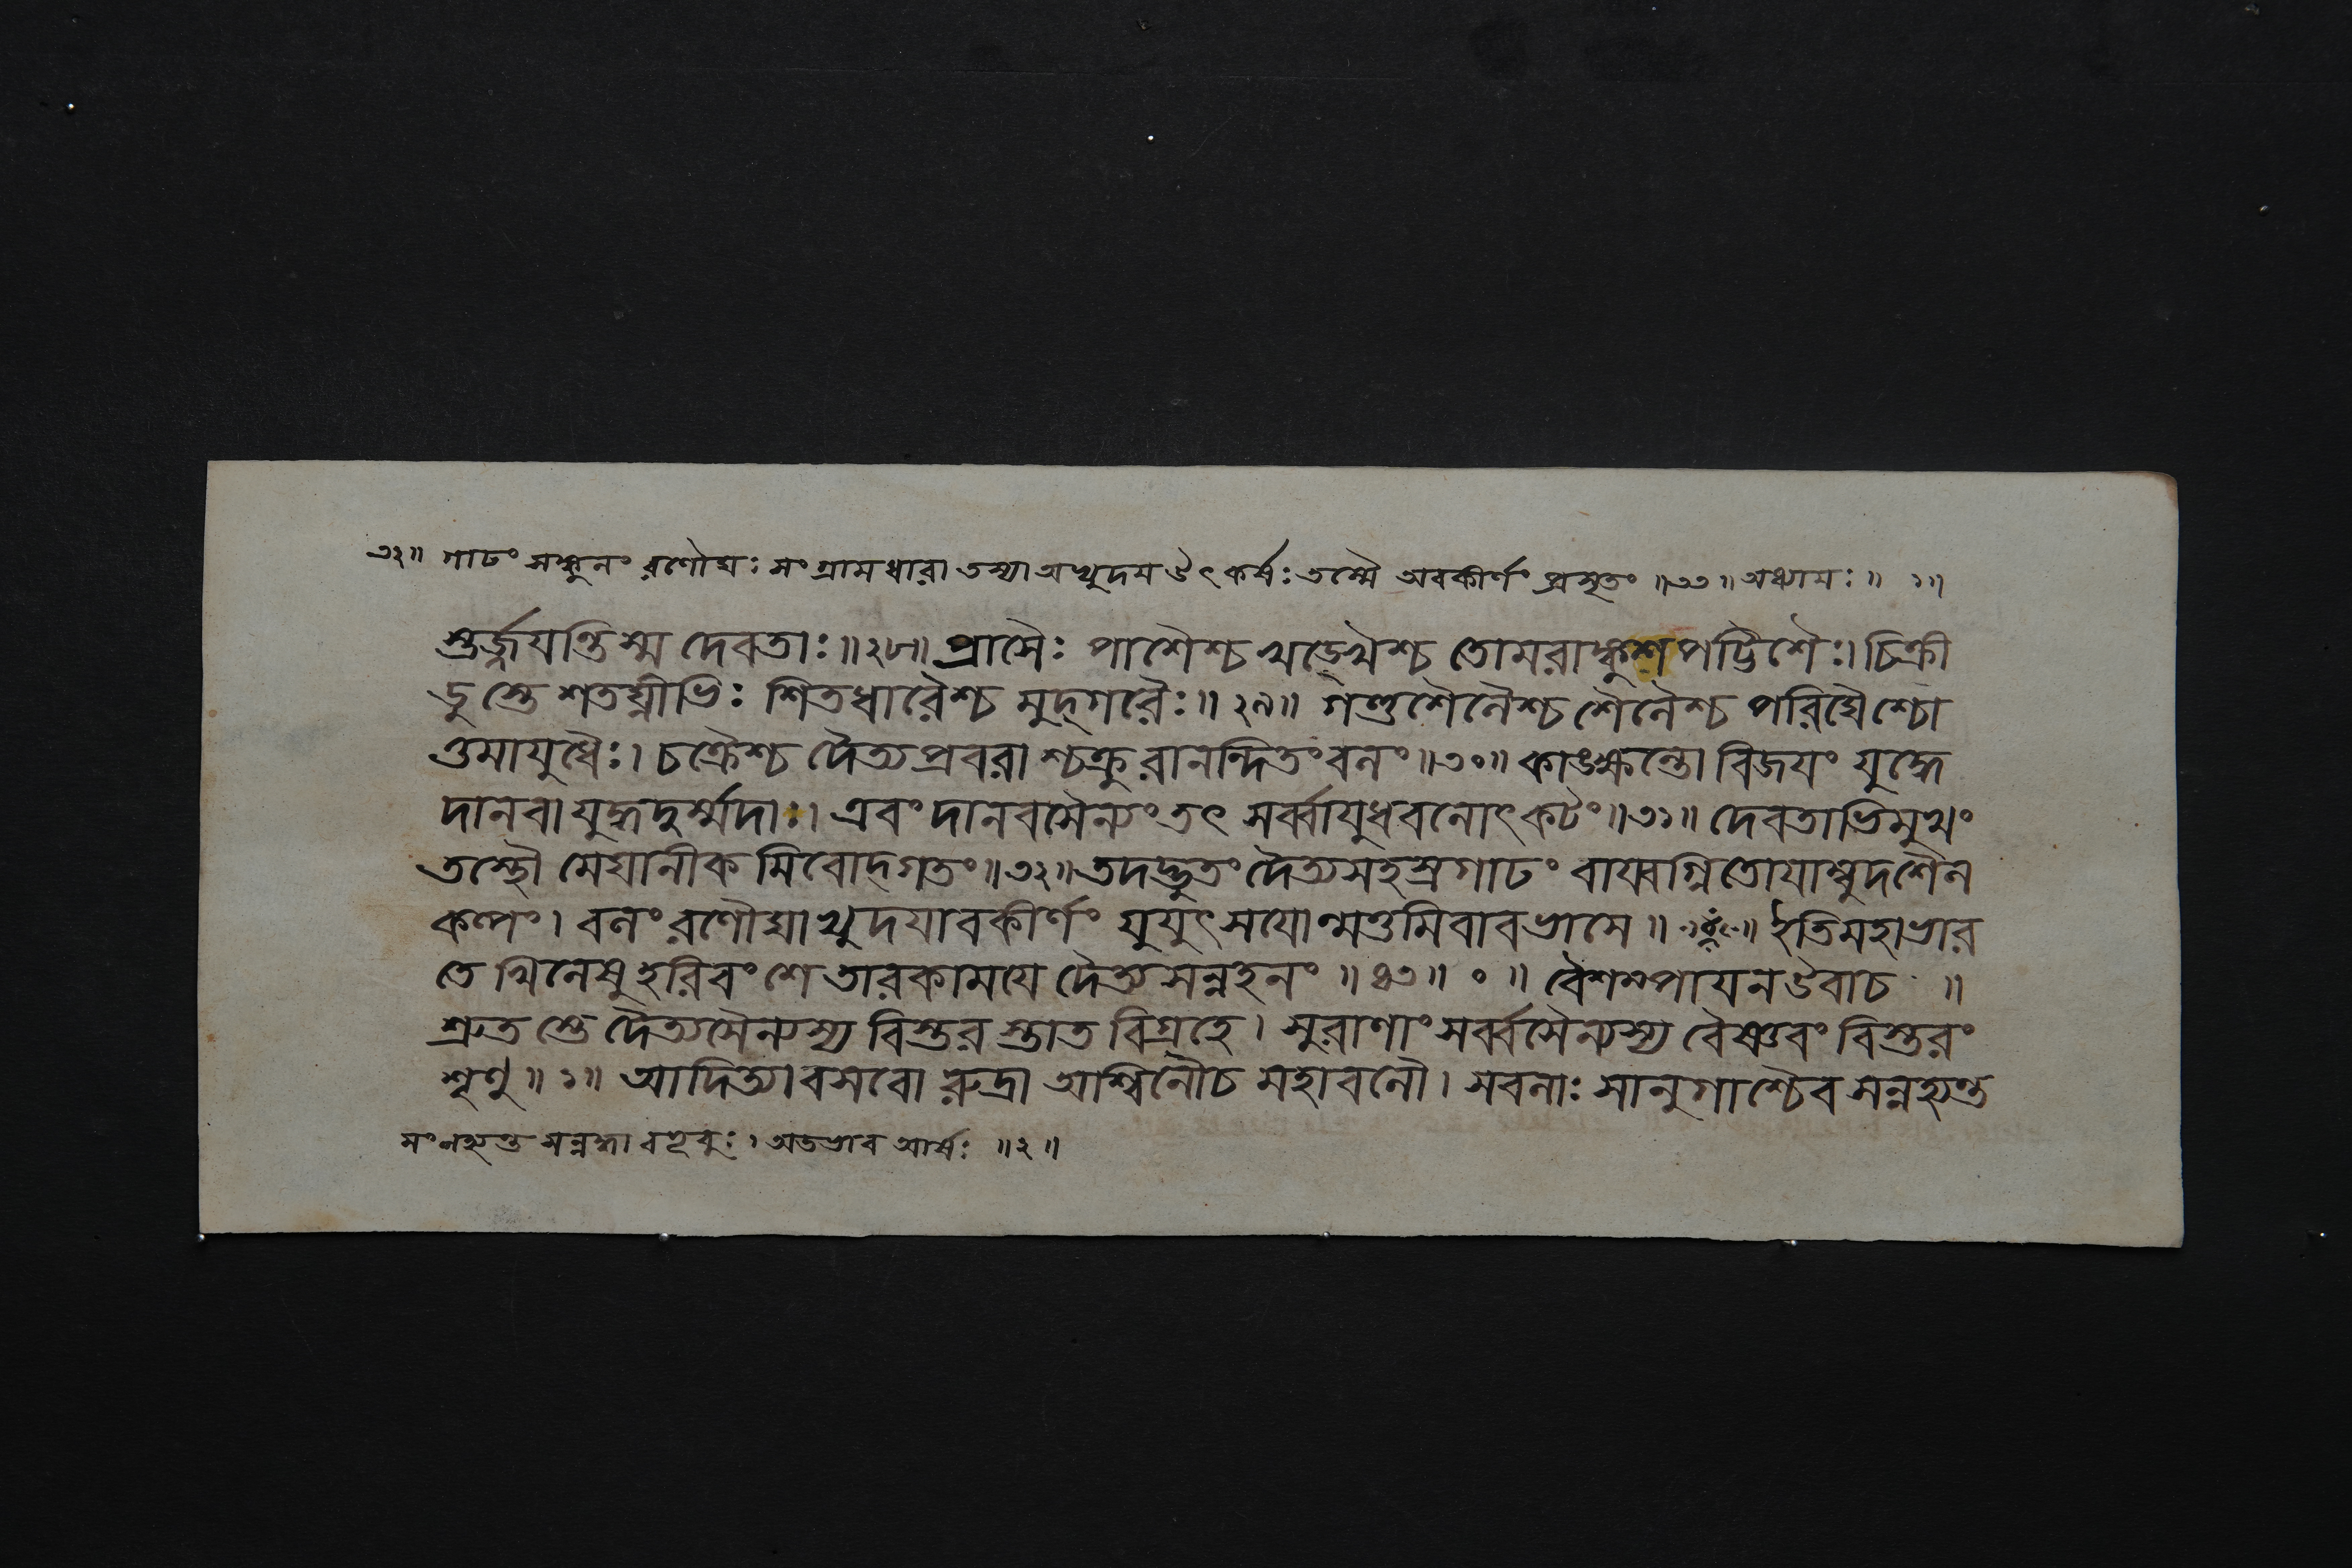 ৩২॥ গাঢং সঙ্কুলং রণৌঘঃ সংগ্রামধারা তস্যা অম্বুদয ঔৎকর্ষঃ তস্মৈ অবকীর্ণং প্রসৃতং ॥৩৩॥ অধ্যাযঃ॥ ১॥
স্তর্জ্জযন্তি স্ম দেবতাঃ॥২৮॥ প্রাসৈঃ পাশৈশ্চ খড্গৈশ্চ তোমরাঙ্কুশপট্টিশৈঃ। চিক্রী
ডুস্তে শতঘ্নীভিঃ শিতধারৈশ্চ মুদ্গরৈঃ॥২৯॥ গণ্ডশৈলৈশ্চ শৈলৈশ্চ পরিঘৈশ্চো
ত্তমাযুধৈঃ। চক্রৈশ্চ দৈত্যপ্রবরাশ্চক্রুরানন্দিতং বলং॥৩০॥ কাঙ্ক্ষন্তো বিজযং যুদ্ধে
দানবা যুদ্ধদুর্ম্মদাঃ। এবং দানবসৈন্যং তৎ সর্ব্বাযুধবলোৎকটং॥৩১॥ দেবতাভিমুখং
তস্থৌ মেঘানীকমিবোদ্গতং॥৩২॥ তদদ্ভুতং দৈত্যসহস্রগাঢং বায্বগ্নিতোযাম্বুদশৈল
কল্পং। বলং রণৌঘাম্বুদযাবকীর্ণং যুযুৎসযোন্মত্তমিবাবভাসে॥ ॥ ইতি মহাভার
তে খিলেষু হরিবংশে তারকামযে দৈত্যসন্নহনং ॥৪৩॥ ০ ॥ বৈশম্পাযন উবাচ ॥
শ্রুতস্তে দৈত্যসৈন্যস্য বিস্তরস্তাত বিগ্রহে। সুরাণাং সর্ব্বসৈন্যস্য বৈষ্ণবং বিস্তরং
শৃণু॥১॥ আদিত্যা বসবো রুদ্রা অশ্বিনৌ চ মহাবলৌ। সবলাঃ সানুগাশ্চৈব সন্নহ্যন্ত
সংনহ্যন্ত সন্নদ্ধা বভূবুঃ। অডভাব আর্ষঃ ॥২॥